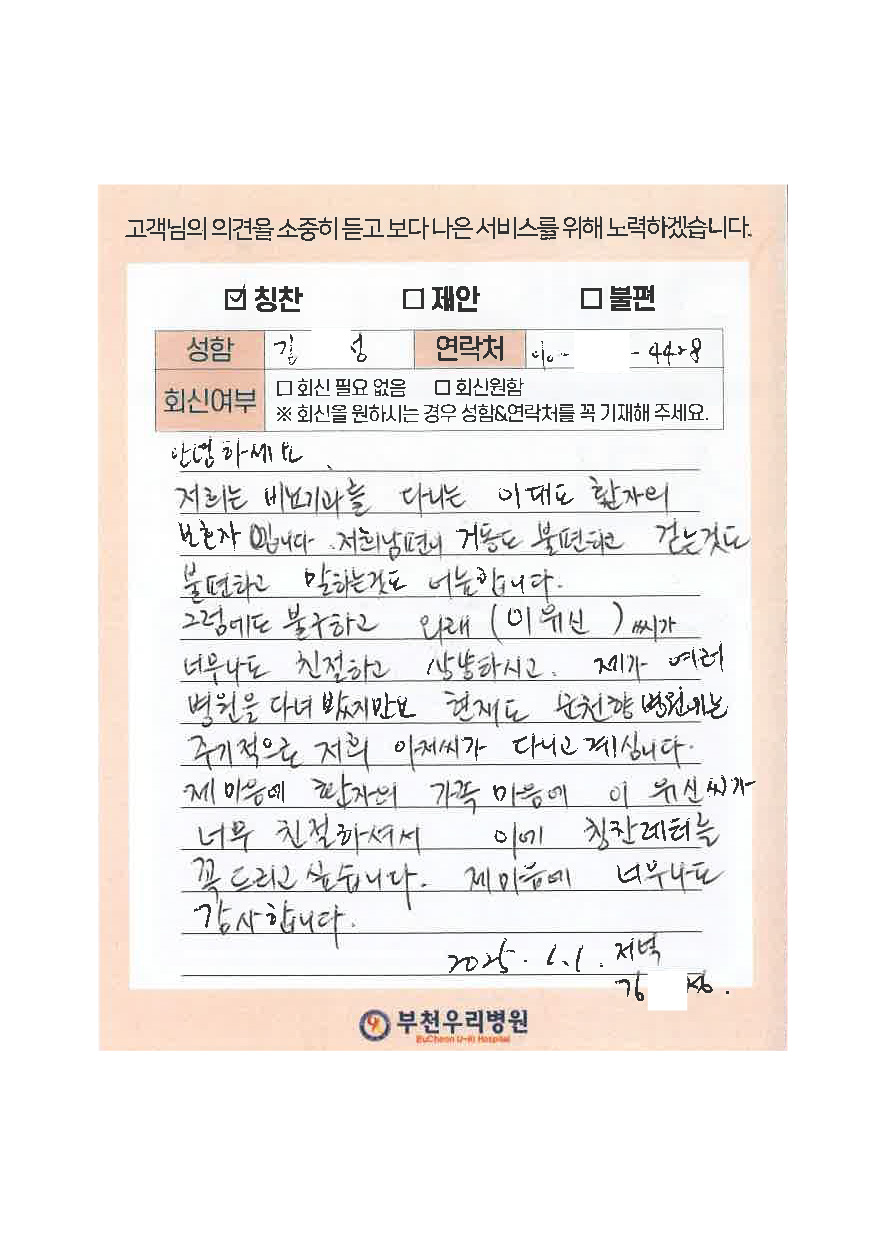 고객님의 의견을 소중히 듣고 보다 나은 서비스를 위해 노력하겠습니다.
☑ 칭찬 □ 제안 □ 불편
성함 김 성 연락처 010- -4428
회신여부 □ 회신 필요 없음 □ 회신원함
※ 회신을 원하시는 경우 성함&연락처를 꼭 기재해 주세요.
안녕하세요
저희는 비뇨기과를 다니는 이대도 환자의
보호자 입니다. 저희남편이 거동도 불편하고 걷는것도
불편하고 말하는것도 어눌합니다.
그럼에도 불구하고 외래 (이유신) 씨가
너무나도 친절하고 상냥하시고. 제가 여러
병원을 다녀 봤지만요 현재도 순천향 병원에는
주기적으로 저희 아저씨가 다니고 계십니다.
제 마음에 환자의 가족 마음에 이 유신 씨가
너무 친절하셔서 이에 칭찬레터를
꼭 드리고 싶습니다. 제 마음에 너무나도
감사합니다.
2025. 1. 저녁
부천우리병원
BuCheon U-Ri Hospital